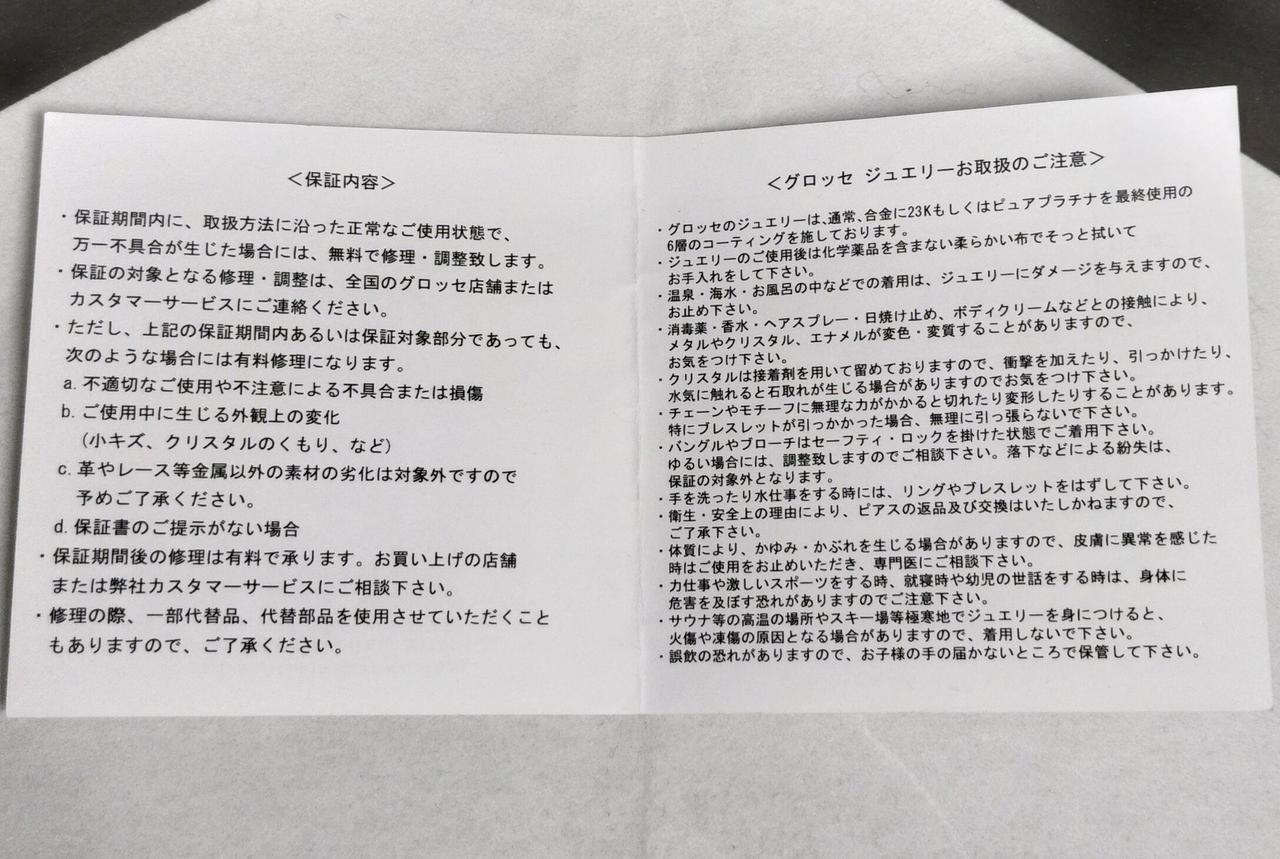 ＜保証内容＞
・保証期間内に、取扱方法に沿った正常なご使用状態で、
万一不具合が生じた場合には、無料で修理・調整致します。
・保証の対象となる修理・調整は、全国のグロッセ店舗または
カスタマーサービスにご連絡ください。
・ただし、上記の保証期間内あるいは保証対象部分であっても、
次のような場合には有料修理になります。
a. 不適切なご使用や不注意による不具合または損傷
b. ご使用中に生じる外観上の変化
（小キズ、クリスタルのくもり、など）
c. 革やレース等金属以外の素材の劣化は対象外ですので
予めご了承ください。
d. 保証書のご提示がない場合
・保証期間後の修理は有料で承ります。お買い上げの店舗
または弊社カスタマーサービスにご相談下さい。
・修理の際、一部代替品、代替部品を使用させていただくこと
もありますので、ご了承ください。
＜グロッセ ジュエリーお取扱のご注意＞
・グロッセのジュエリーは、通常、合金に23Kもしくはピュアプラチナを最終使用の
6層のコーティングを施しております。
・ジュエリーのご使用後は化学薬品を含まない柔らかい布でそっと拭いて
お手入れをして下さい。
・温泉・海水・お風呂の中などでの着用は、ジュエリーにダメージを与えますので、
お止め下さい。
・消毒薬・香水・ヘアスプレー・日焼け止め、ボディクリームなどとの接触により、
メタルやクリスタル、エナメルが変色・変質することがありますので、
お気をつけ下さい。
・クリスタルは接着剤を用いて留めておりますので、衝撃を加えたり、引っかけたり、
水気に触れると石取れが生じる場合がありますのでお気をつけ下さい。
・チェーンやモチーフに無理な力がかかると切れたり変形したりすることがあります。
特にブレスレットが引っかかった場合、無理に引っ張らないで下さい。
・バングルやブローチはセーフティ・ロックを掛けた状態でご着用下さい。
ゆるい場合には、調整致しますのでご相談下さい。落下などによる紛失は、
保証の対象外となります。
・手を洗ったり水仕事をする時には、リングやブレスレットをはずして下さい。
・衛生・安全上の理由により、ピアスの返品及び交換はいたしかねますので、
ご了承下さい。
・体質により、かゆみ・かぶれを生じる場合がありますので、皮膚に異常を感じた
時はご使用をお止めいただき、専門医にご相談下さい。
・力仕事や激しいスポーツをする時、就寝時や幼児の世話をする時は、身体に
危害を及ぼす恐れがありますのでご注意下さい。
・サウナ等の高温の場所やスキー場等極寒地でジュエリーを身につけると、
火傷や凍傷の原因となる場合がありますので、着用しないで下さい。
・誤飲の恐れがありますので、お子様の手の届かないところで保管して下さい。